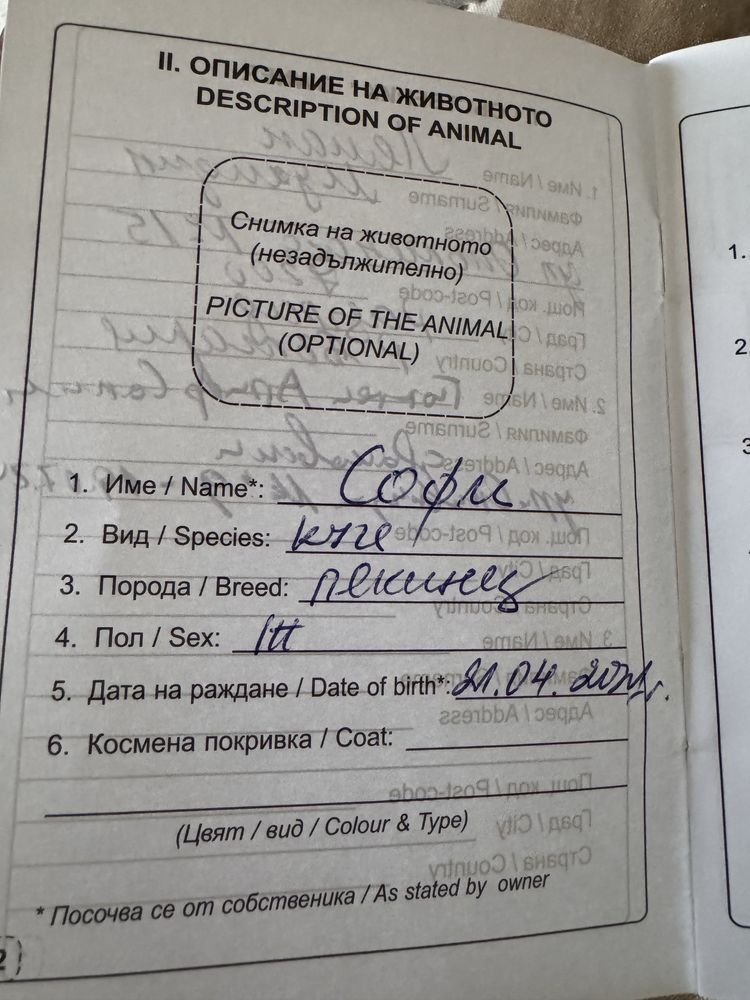 II. ОПИСАНИЕ НА ЖИВОТНОТО
DESCRIPTION OF ANIMAL
Снимка на животното
(незадължително)
PICTURE OF THE ANIMAL
(OPTIONAL)
1. Име / Name*: Софи
2. Вид / Species: куче
3. Порода / Breed: пекинез
4. Пол / Sex:
5. Дата на раждане / Date of birth*: 21.04.2021г.
6. Космена покривка / Coat:
(Цвят / вид / Colour & Type)
* Посочва се от собственика / As stated by owner
1.
2.
3